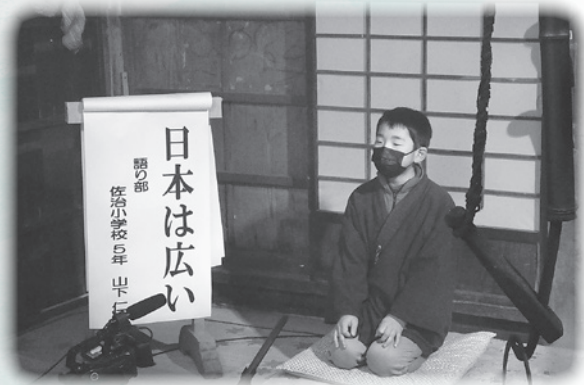 日本は広い
語り部
佐治小学校 5年 山下